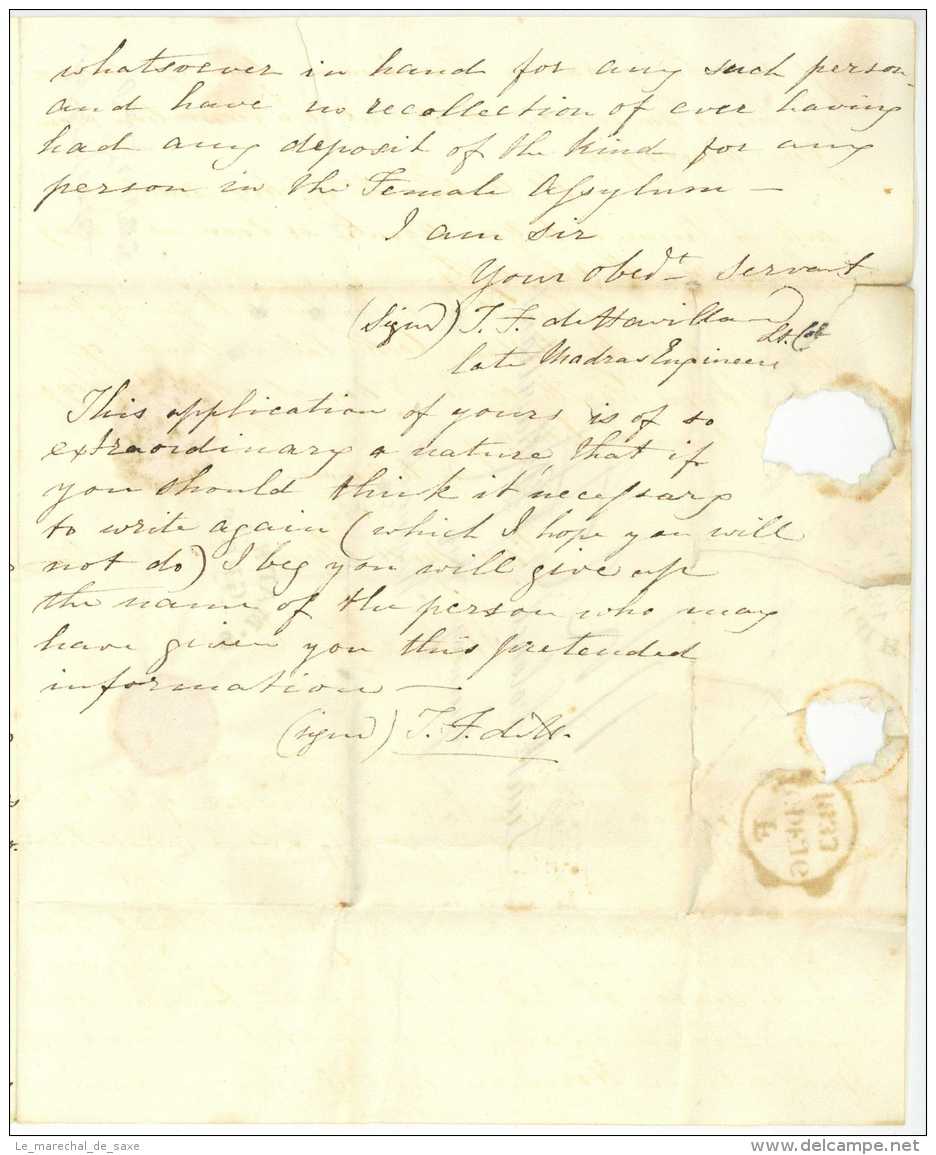 whatsoever in hand for any such person
and have no recollection of ever having
had any deposit of the kind for any
person in the Female Assylum —
I am Sir
Your Obedt Servant
(Signd) T. F. de Havilland Lt. Col
late Madras Engineers
This application of yours is of so
extraordinary a nature, that if
you should think it necessary
to write again (which I hope you will
not do) I beg you will give up
the name of the person who may
have given you this pretended
information —
(signd) T. F. de H.
F
1833
Le_marechal_de_saxe
delcampe.net